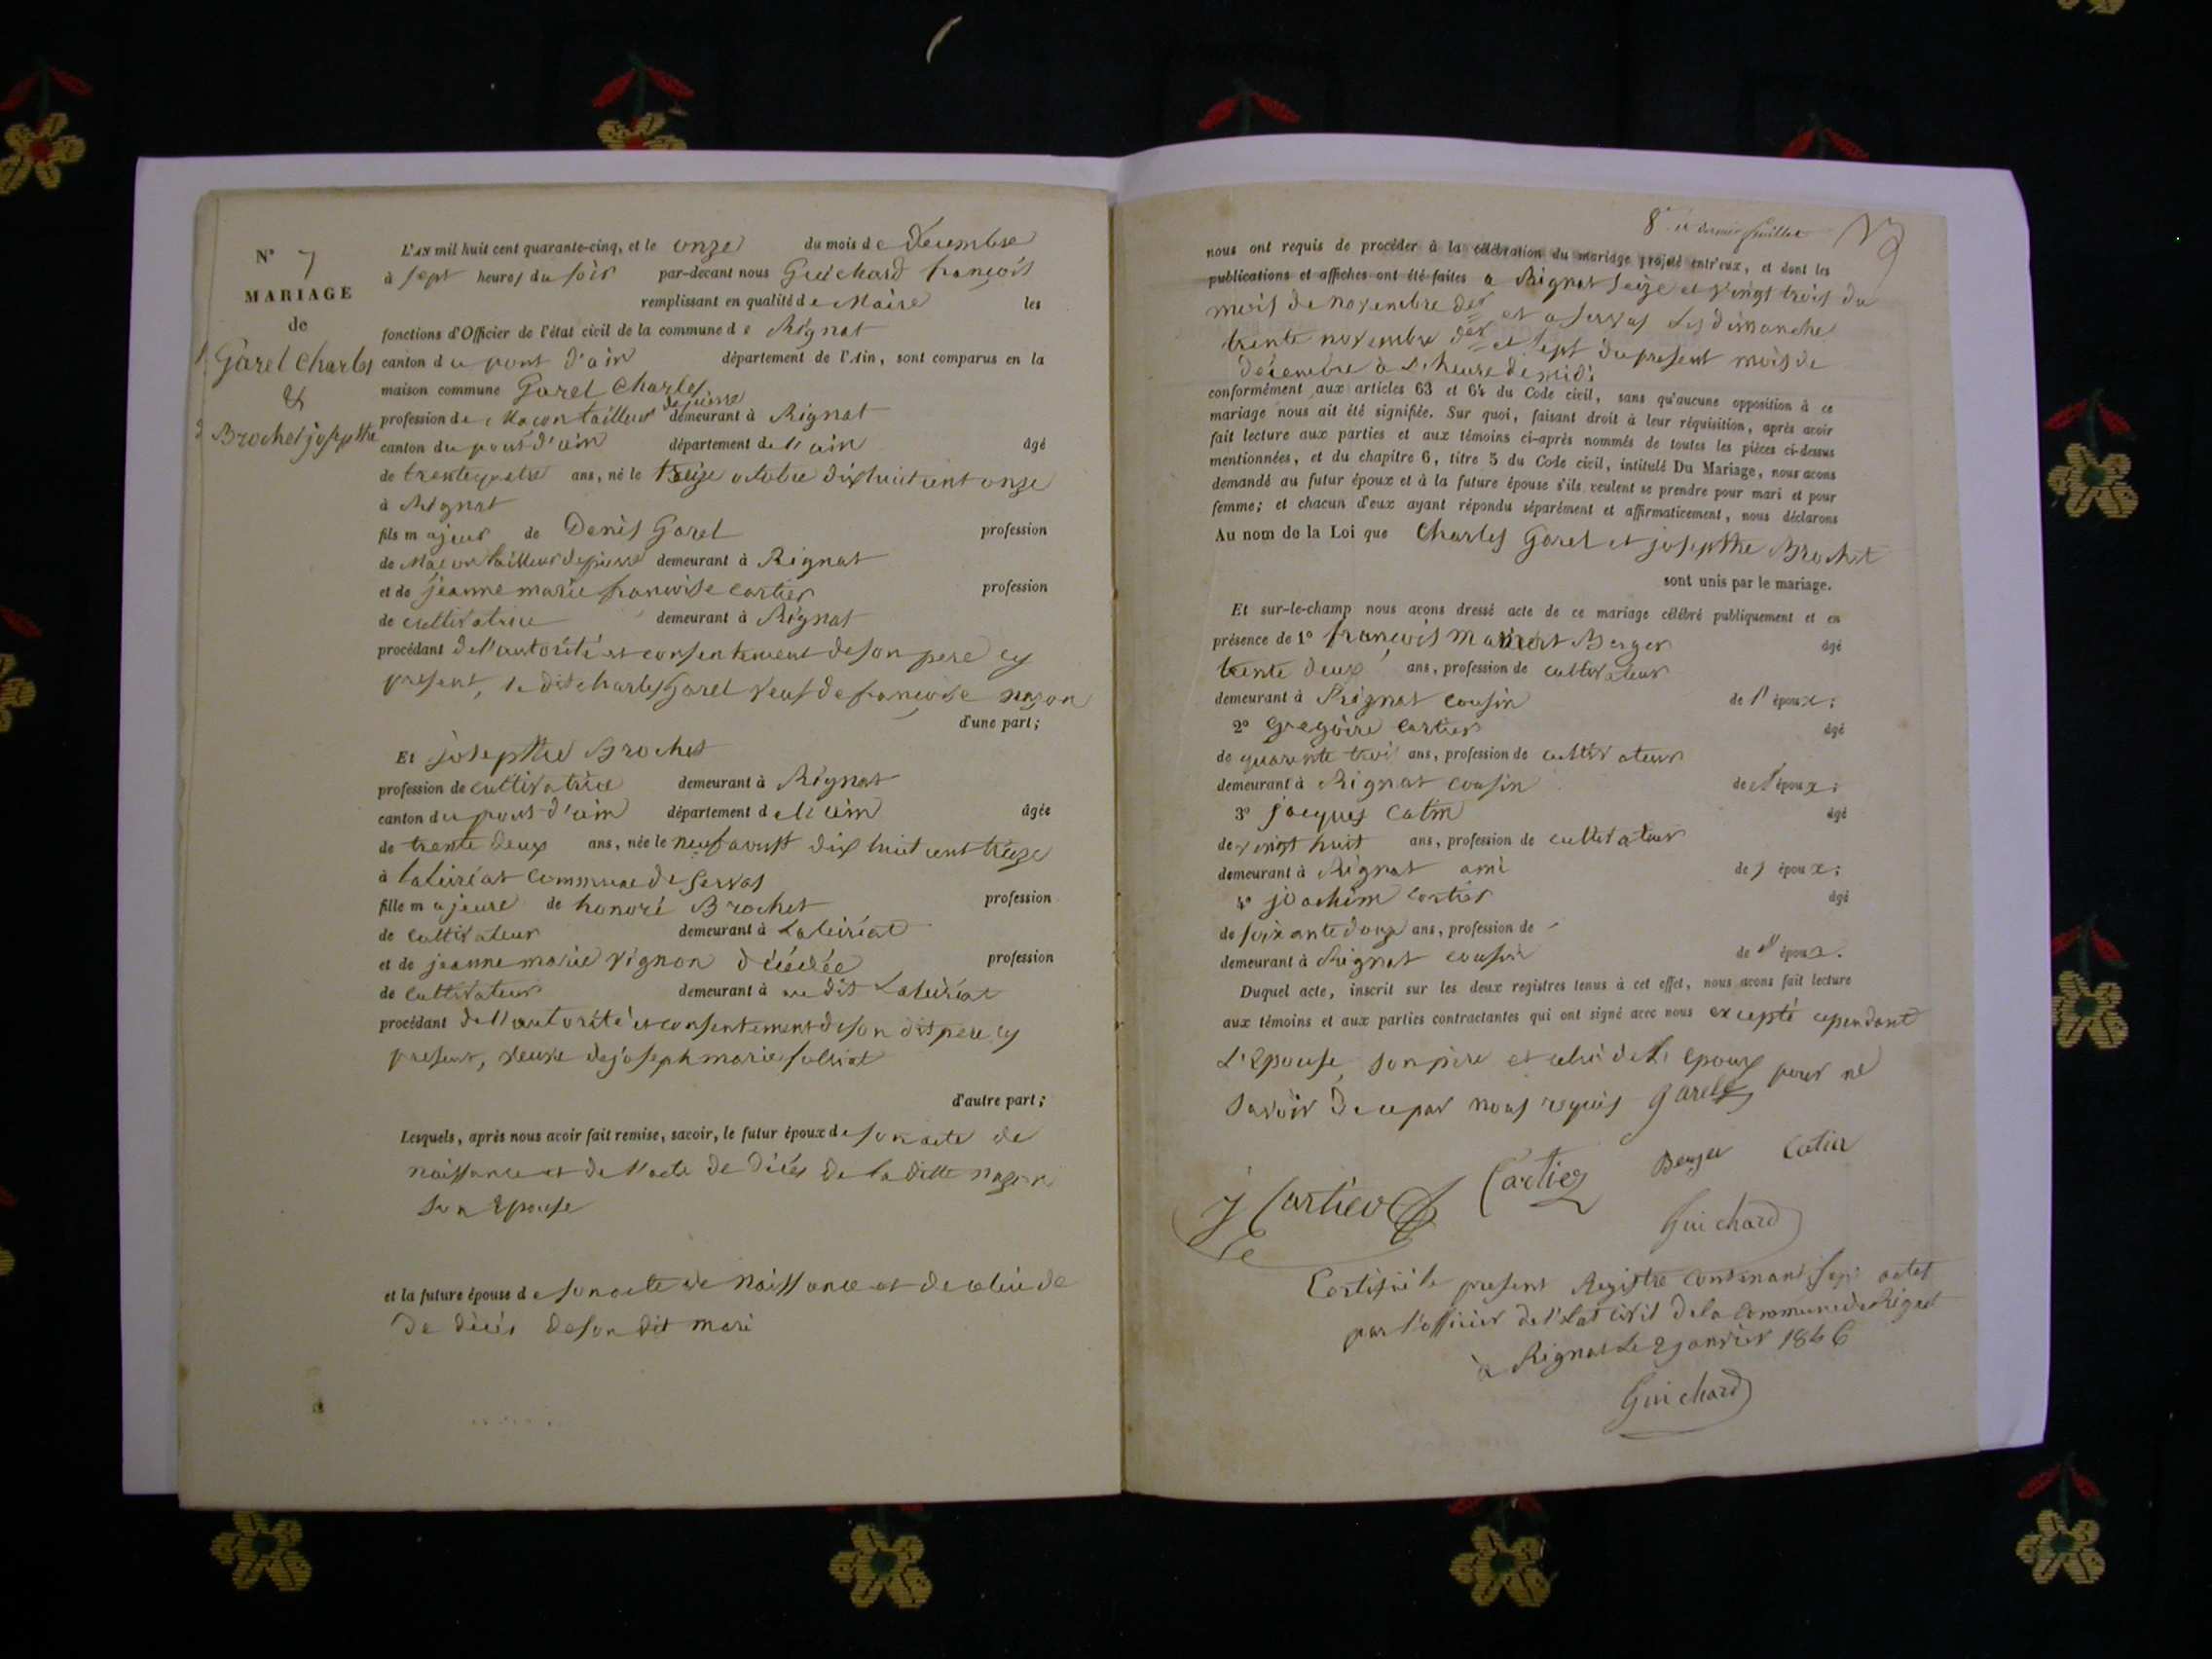 N° 7
MARIAGE
de
1 Garel Charles
&
2 Brochet josepthe
L'AN mil huit cent quarante-cinq, et le onze du mois de Decembre
à sept heures du soir par-devant nous Guichard françois
remplissant en qualité de Maire les
fonctions d'Officier de l'état civil de la commune de Rignat
canton du pont d'ain département de l'Ain, sont comparus en la
maison commune Garel Charles
profession de Maçon tailleur de pierre demeurant à Rignat
canton du pont d'ain département de l'ain âgé
de trente quatre ans, né le treize octobre dix huit cent onze
à Rignat
fils majeur de Denis Garel profession
de Maçon tailleur de pierre demeurant à Rignat
et de jeanne marie françoise cartier profession
de cultivatrice demeurant à Rignat
procédant de l'autorité et consentement de son pere cy
present, le dit charles Garel veuf de françoise nazon
d'une part;
Et josepthe Brochet
profession de cultivatrice demeurant à Rignat
canton du pont d'ain département de l'ain âgée
de trente deux ans, née le neuf aoust dix huit cent treize
à laleiriat commune de Servas
fille majeure de honoré Brochet profession
de cultivateur demeurant à Laleiriat
et de jeanne marie vignon décédée profession
de cultivateur demeurant à au dit Laleiriat
procédant de l'autorité et consentement de son dit pere cy
present, veuve de joseph marie
d'autre part;
Lesquels, après nous avoir fait remise, savoir, le futur époux de son acte de
naissance et de l'acte de décés de la ditte nazon
son Epouse
et la future épouse de son acte de Naissance et de celui de
de décés de son dit mari
8e et dernier feuillet
nous ont requis de procéder à la célébration du mariage projeté entr'eux, et dont les
publications et affiches ont été faites a Rignat seize et vingt trois du
mois de novembre der et a servas les dimanche
trente novembre der et sept du present mois de
décembre à L'heure de midi
conformément aux articles 63 et 64 du Code civil, sans qu'aucune opposition à ce
mariage nous ait été signifiée. Sur quoi, faisant droit à leur réquisition, après avoir
fait lecture aux parties et aux témoins ci-après nommés de toutes les pièces ci-dessus
mentionnées, et du chapitre 6, titre 5 du Code civil, intitulé Du Mariage, nous avons
demandé au futur époux et à la future épouse s'ils veulent se prendre pour mari et pour
femme; et chacun d'eux ayant répondu séparément et affirmativement, nous déclarons
Au nom de la Loi que Charles Garel et josepthe Brochet
sont unis par le mariage.
Et sur-le-champ nous avons dressé acte de ce mariage célébré publiquement et en
présence de 1° françois Berger âgé
trente deux ans, profession de cultivateur
demeurant à Rignat cousin de l'époux;
2° Gregoire Cartier âgé
de quarente trois ans, profession de cultivateur
demeurant à Rignat cousin de l'époux;
3° jacques Catin âgé
de vingt huit ans, profession de cultivateur
demeurant à Rignat ami de l'époux;
4° joachim Cartier âgé
de soixante douze ans, profession de
demeurant à Rignat cousin de l'époux.
Duquel acte, inscrit sur les deux registres tenus à cet effet, nous avons fait lecture
aux témoins et aux parties contractantes qui ont signé avec nous excepté cependant
L'Epouse, son père et celui de l'epoux pour ne
savoir de ce par nous requis Garel
j Cartier Cartier Berger Catin
Guichard
Certifié le present Registre contenant sept actes
par l'officier de l'état civil de la commune de Rignat
à Rignat le 2 janvier 1846
Guichard